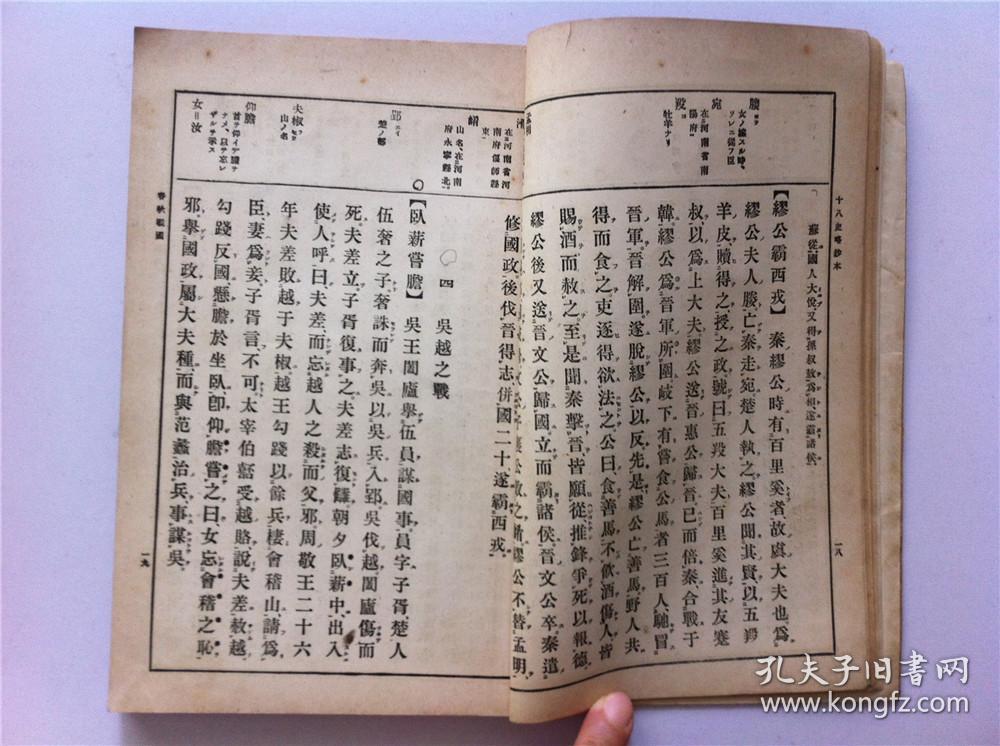 十八史略鈔本
一八
蘇從、國人大悅、又得孫叔敖爲相、遂霸諸侯、
【繆公霸西戎】秦繆公時有百里奚者、故虞大夫也、爲
繆公夫人媵、亡秦走宛、楚人執之、繆公聞其賢、以五羖
羊皮贖得之、授之政、號曰五羖大夫、百里奚進其友蹇
叔、以爲上大夫、繆公送晉惠公歸晉、已而倍秦、合戰于
韓、繆公爲晉軍所圍、岐下有嘗食公馬者三百人、馳冒
晉軍、晉解圍、遂脫繆公以反、先是繆公亡善馬、野人共
得而食之、吏逐得欲法之、公曰、食善馬不飲酒傷人、皆
賜酒而赦之、至是聞秦擊晉、皆願從、推鋒爭死、以報德、
繆公後又送晉文公歸國、立而霸諸侯、晉文公卒、秦遣
公敗之、繆公不替孟明、
修國政、後伐晉得志、併國二十、遂霸西戎、
媵
女ノ嫁スル時、
ソレニ從フ臣
宛
在河南省南
陽府
羖
牡羊ナリ
在河南省河
南府偃師縣
東
山名、在河南
府永寧縣北
四 吳越之戰
【臥薪嘗膽】吳王闔廬擧伍員謀國事、員字子胥、楚人
伍奢之子、奢誅而奔吳、以吳兵入郢、吳伐越、闔廬傷而
死、夫差立、子胥復事之、夫差志復讎、朝夕臥薪中、出入
使人呼曰、夫差、而忘越人之殺而父邪、周敬王二十六
年、夫差敗越于夫椒、越王勾踐以餘兵棲會稽山、請爲
臣、妻爲妾、子胥言不可、太宰伯嚭受越賂、說夫差赦越、
勾踐反國、懸膽於坐臥、卽仰膽嘗之曰、女忘會稽之恥
邪、擧國政屬大夫種、而與范蠡治兵、事謀吳、
郢
楚ノ都
夫椒
山ノ名
仰膽
首ヲ仰イデ膽ヲ
ナメ、以テ忘レ
ザルヲ示ス
女=汝
春秋戰國
一九
孔夫子旧书网
www.kongfz.com